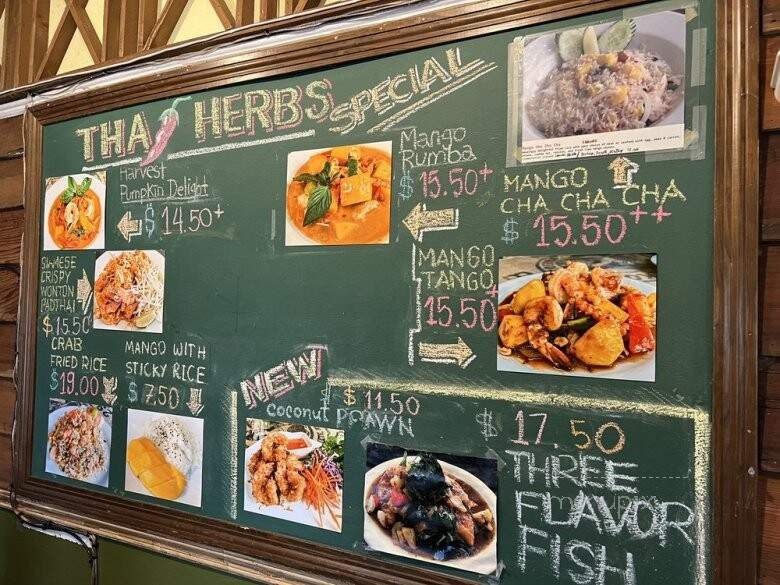 THAI HERBS SPECIAL
Harvest
Pumpkin Delight
$ 14.50+
SIAMESE
CRISPY
WONTON
PADTHAI
$ 15.50
CRAB
FRIED RICE
$19.00
MANGO WITH
STICKY RICE
$ 7.50
Mango
Rumba
$15.50+
MANGO
TANGO
15.50+
MANGO
CHA CHA CHA
$ 15.50++
NEW
$ 11.50
coconut PRAWN
$ 17.50
THREE
FLAVOR
FISH